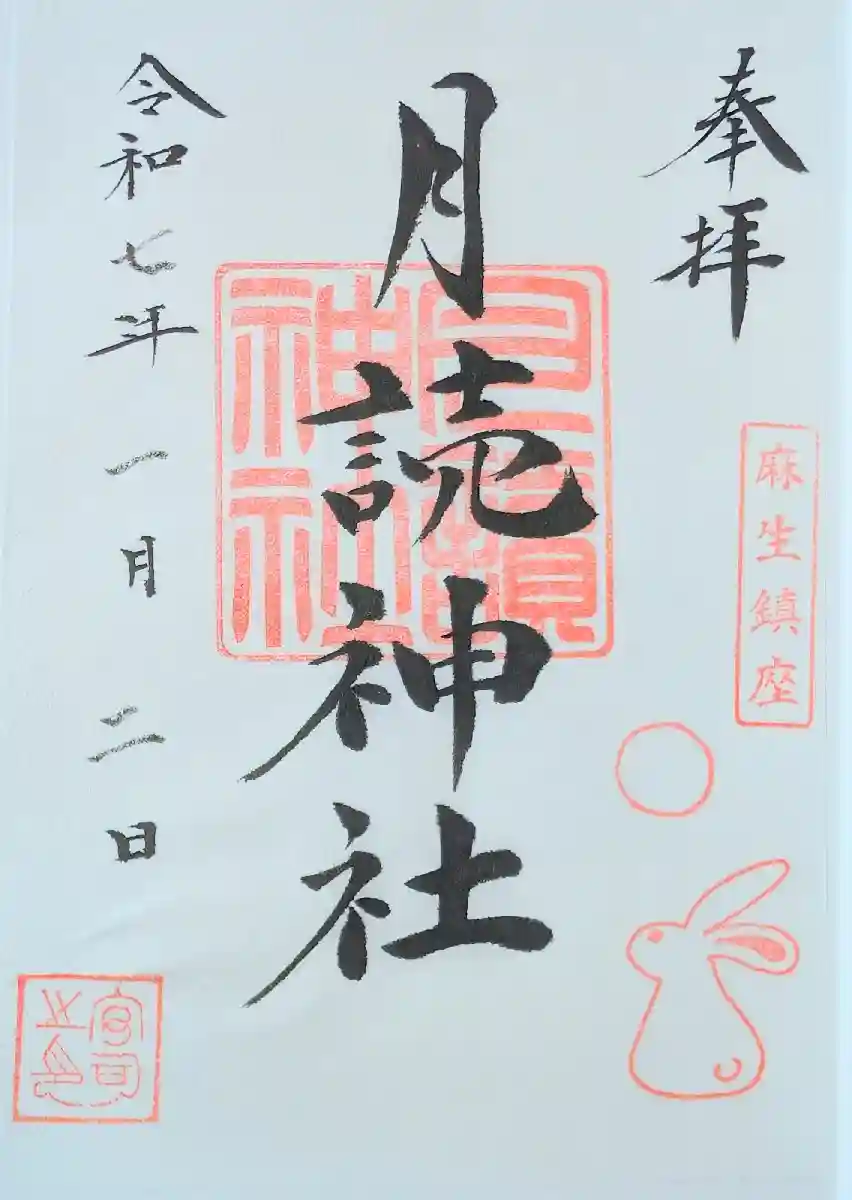 奉拝
麻生鎮座
月読神社
月讀神社
令和七年一月二日